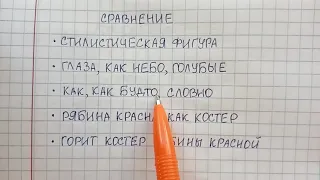 СРАВНЕНИЕ
• СТИЛИСТИЧЕСКАЯ ФИГУРА
• ГЛАЗА, КАК НЕБО, ГОЛУБЫЕ
• КАК, КАК БУДТО, СЛОВНО
• РЯБИНА КРАСНА, КАК КОСТЕР
• ГОРИТ КОСТЕР РЯБИНЫ КРАСНОЙ